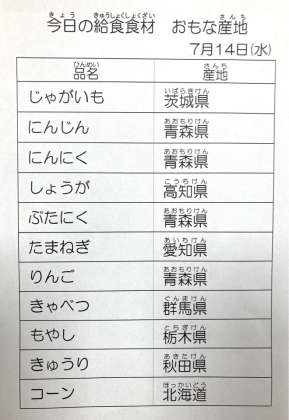 今日の給食食材　おもな産地
7月14日(水)
品名　産地
じゃがいも　茨城県
にんじん　青森県
にんにく　青森県
しょうが　高知県
ぶたにく　青森県
たまねぎ　愛知県
りんご　青森県
きゃべつ　群馬県
もやし　栃木県
きゅうり　秋田県
コーン　北海道